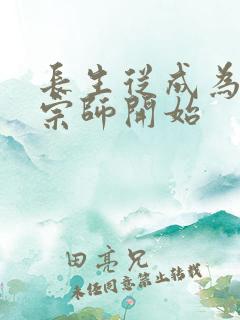 長生從成為
宗師開始
田亮兄
未經同意禁止轉載